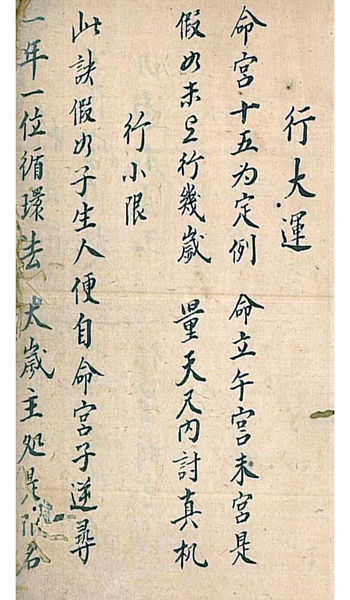 行大運
命宮十五为定例　命立午宫未宫是
假如未上行幾歲　量天尺内討真机
行小限
此訣假如子生人便自命宮子逆尋
一年一位循環法　太歲主处是限名